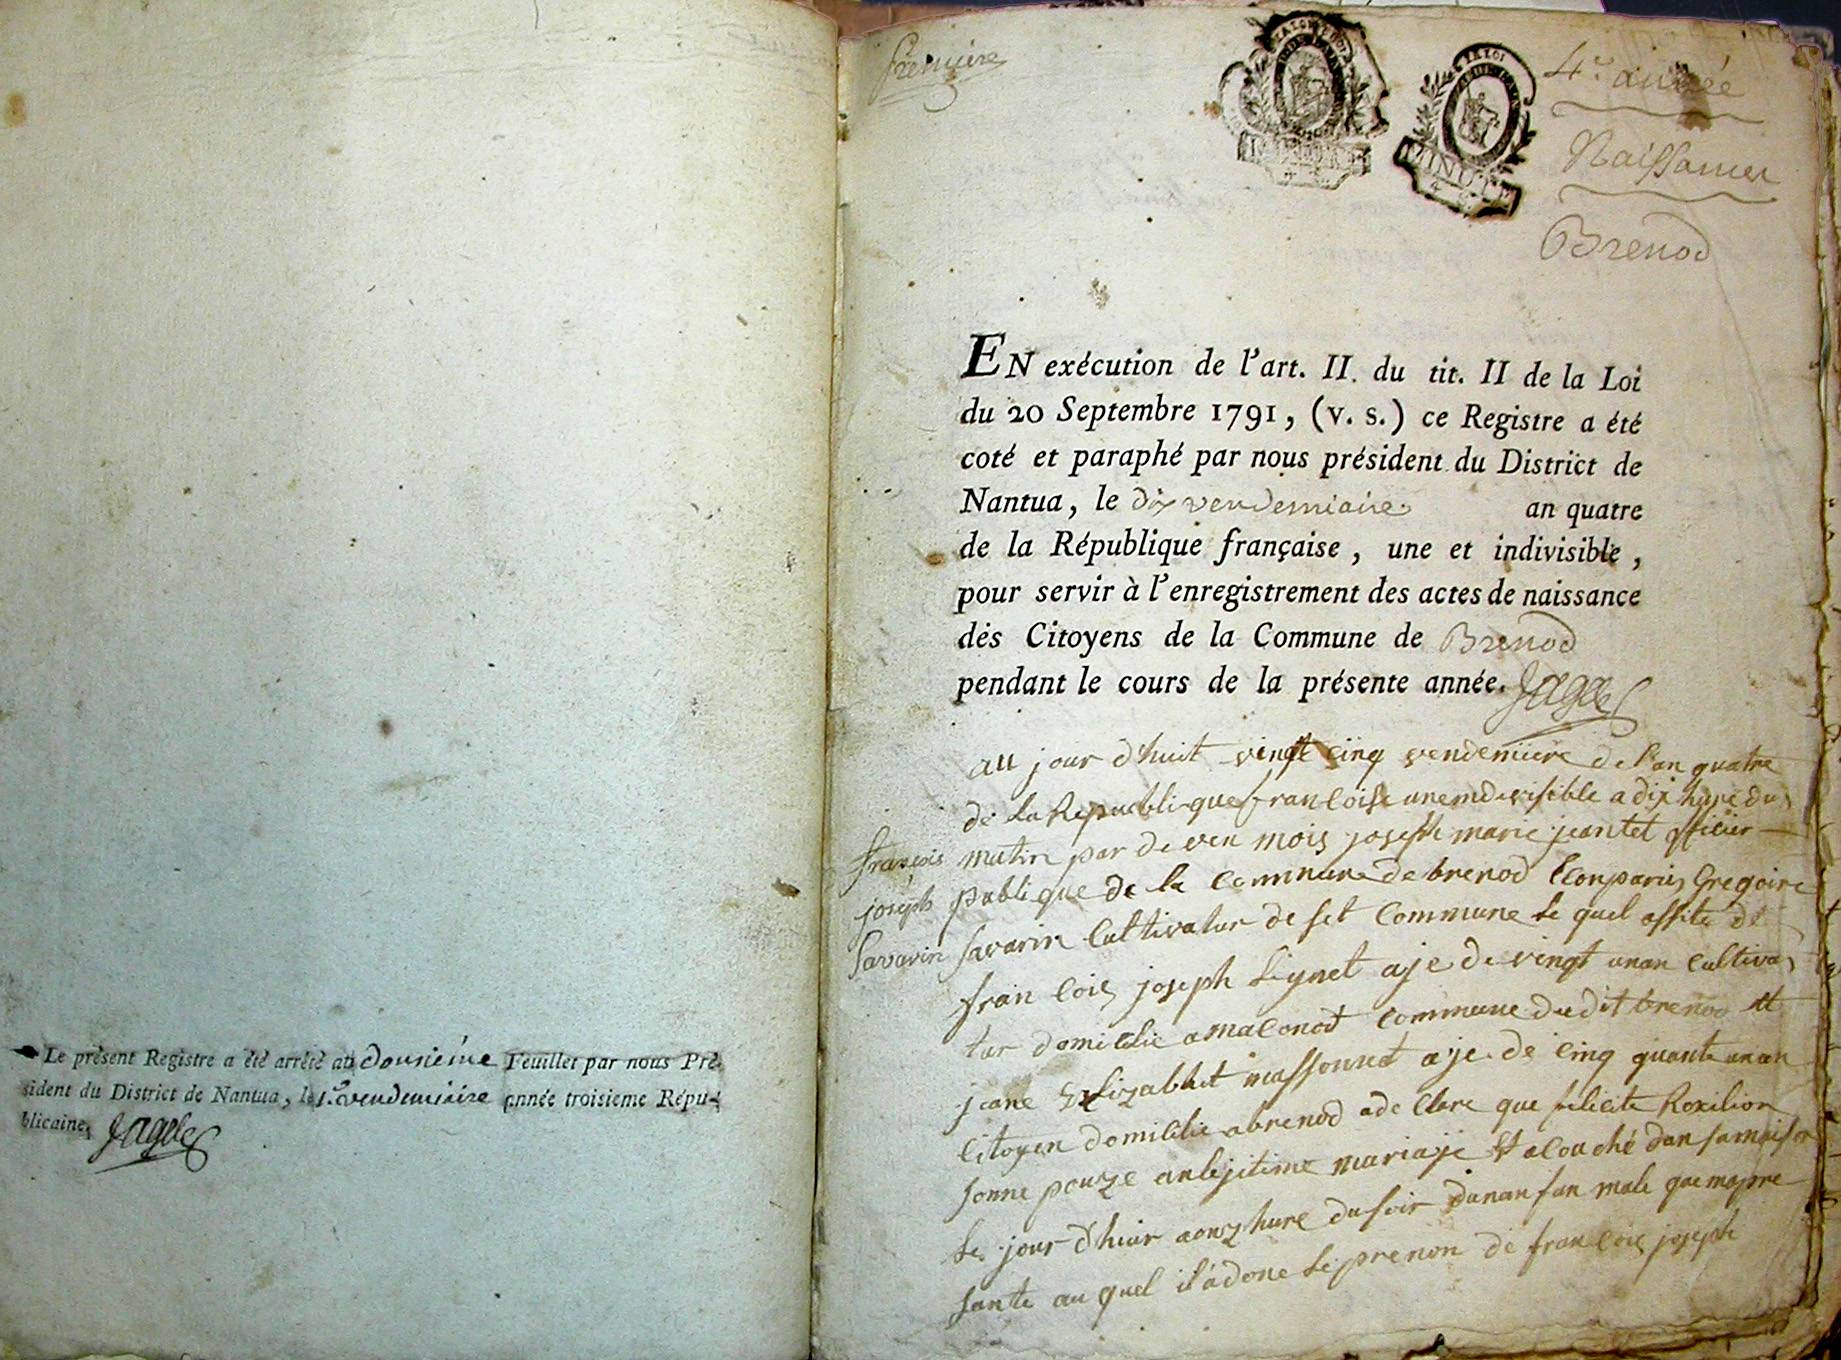 Le présent Registre a été arrêté au dousieme Feuillet par nous Pré-
sident du District de Nantua, le 1.er vendemiaire année troisieme Répu-
blicaine,
Premiere
LA LOI
LA LOI
MINUTE
4.e année
Naissances
Brenod
EN exécution de l'art. II. du tit. II de la Loi
du 20 Septembre 1791, (v. s.) ce Registre a été
coté et paraphé par nous président du District de
Nantua, le dix vendemiaire an quatre
de la République française, une et indivisible,
pour servir à l'enregistrement des actes de naissance
des Citoyens de la Commune de Brenod
pendant le cours de la présente année.
françois
joseph
Savarin
au jour d'huit vingt cinq vendemiere de l'an quatre
de La Republique francoise une indevisible a dix hure du
matin par de ven mois joseph marie jeantet officier
publique de la commune de brenod Comparus Gregoire
Savarin Cultivatur de set Commune Le quel assite de
francois joseph Lignet aje de vingt un an Cultiva
tur domicilie a maconod commune du dit brenod et
jeane Elizabhet massonnet aje de cinq quante un an
Citoyen domicilie a brenod a de Clare que felicite Roxilion
sonne pouze an lejitime mariaje Et acouché dan sa maison
Le jour d'hiair a onz hure du soir d'un an fan male que ma pre
sante au quel il a done Le prenon de francois joseph